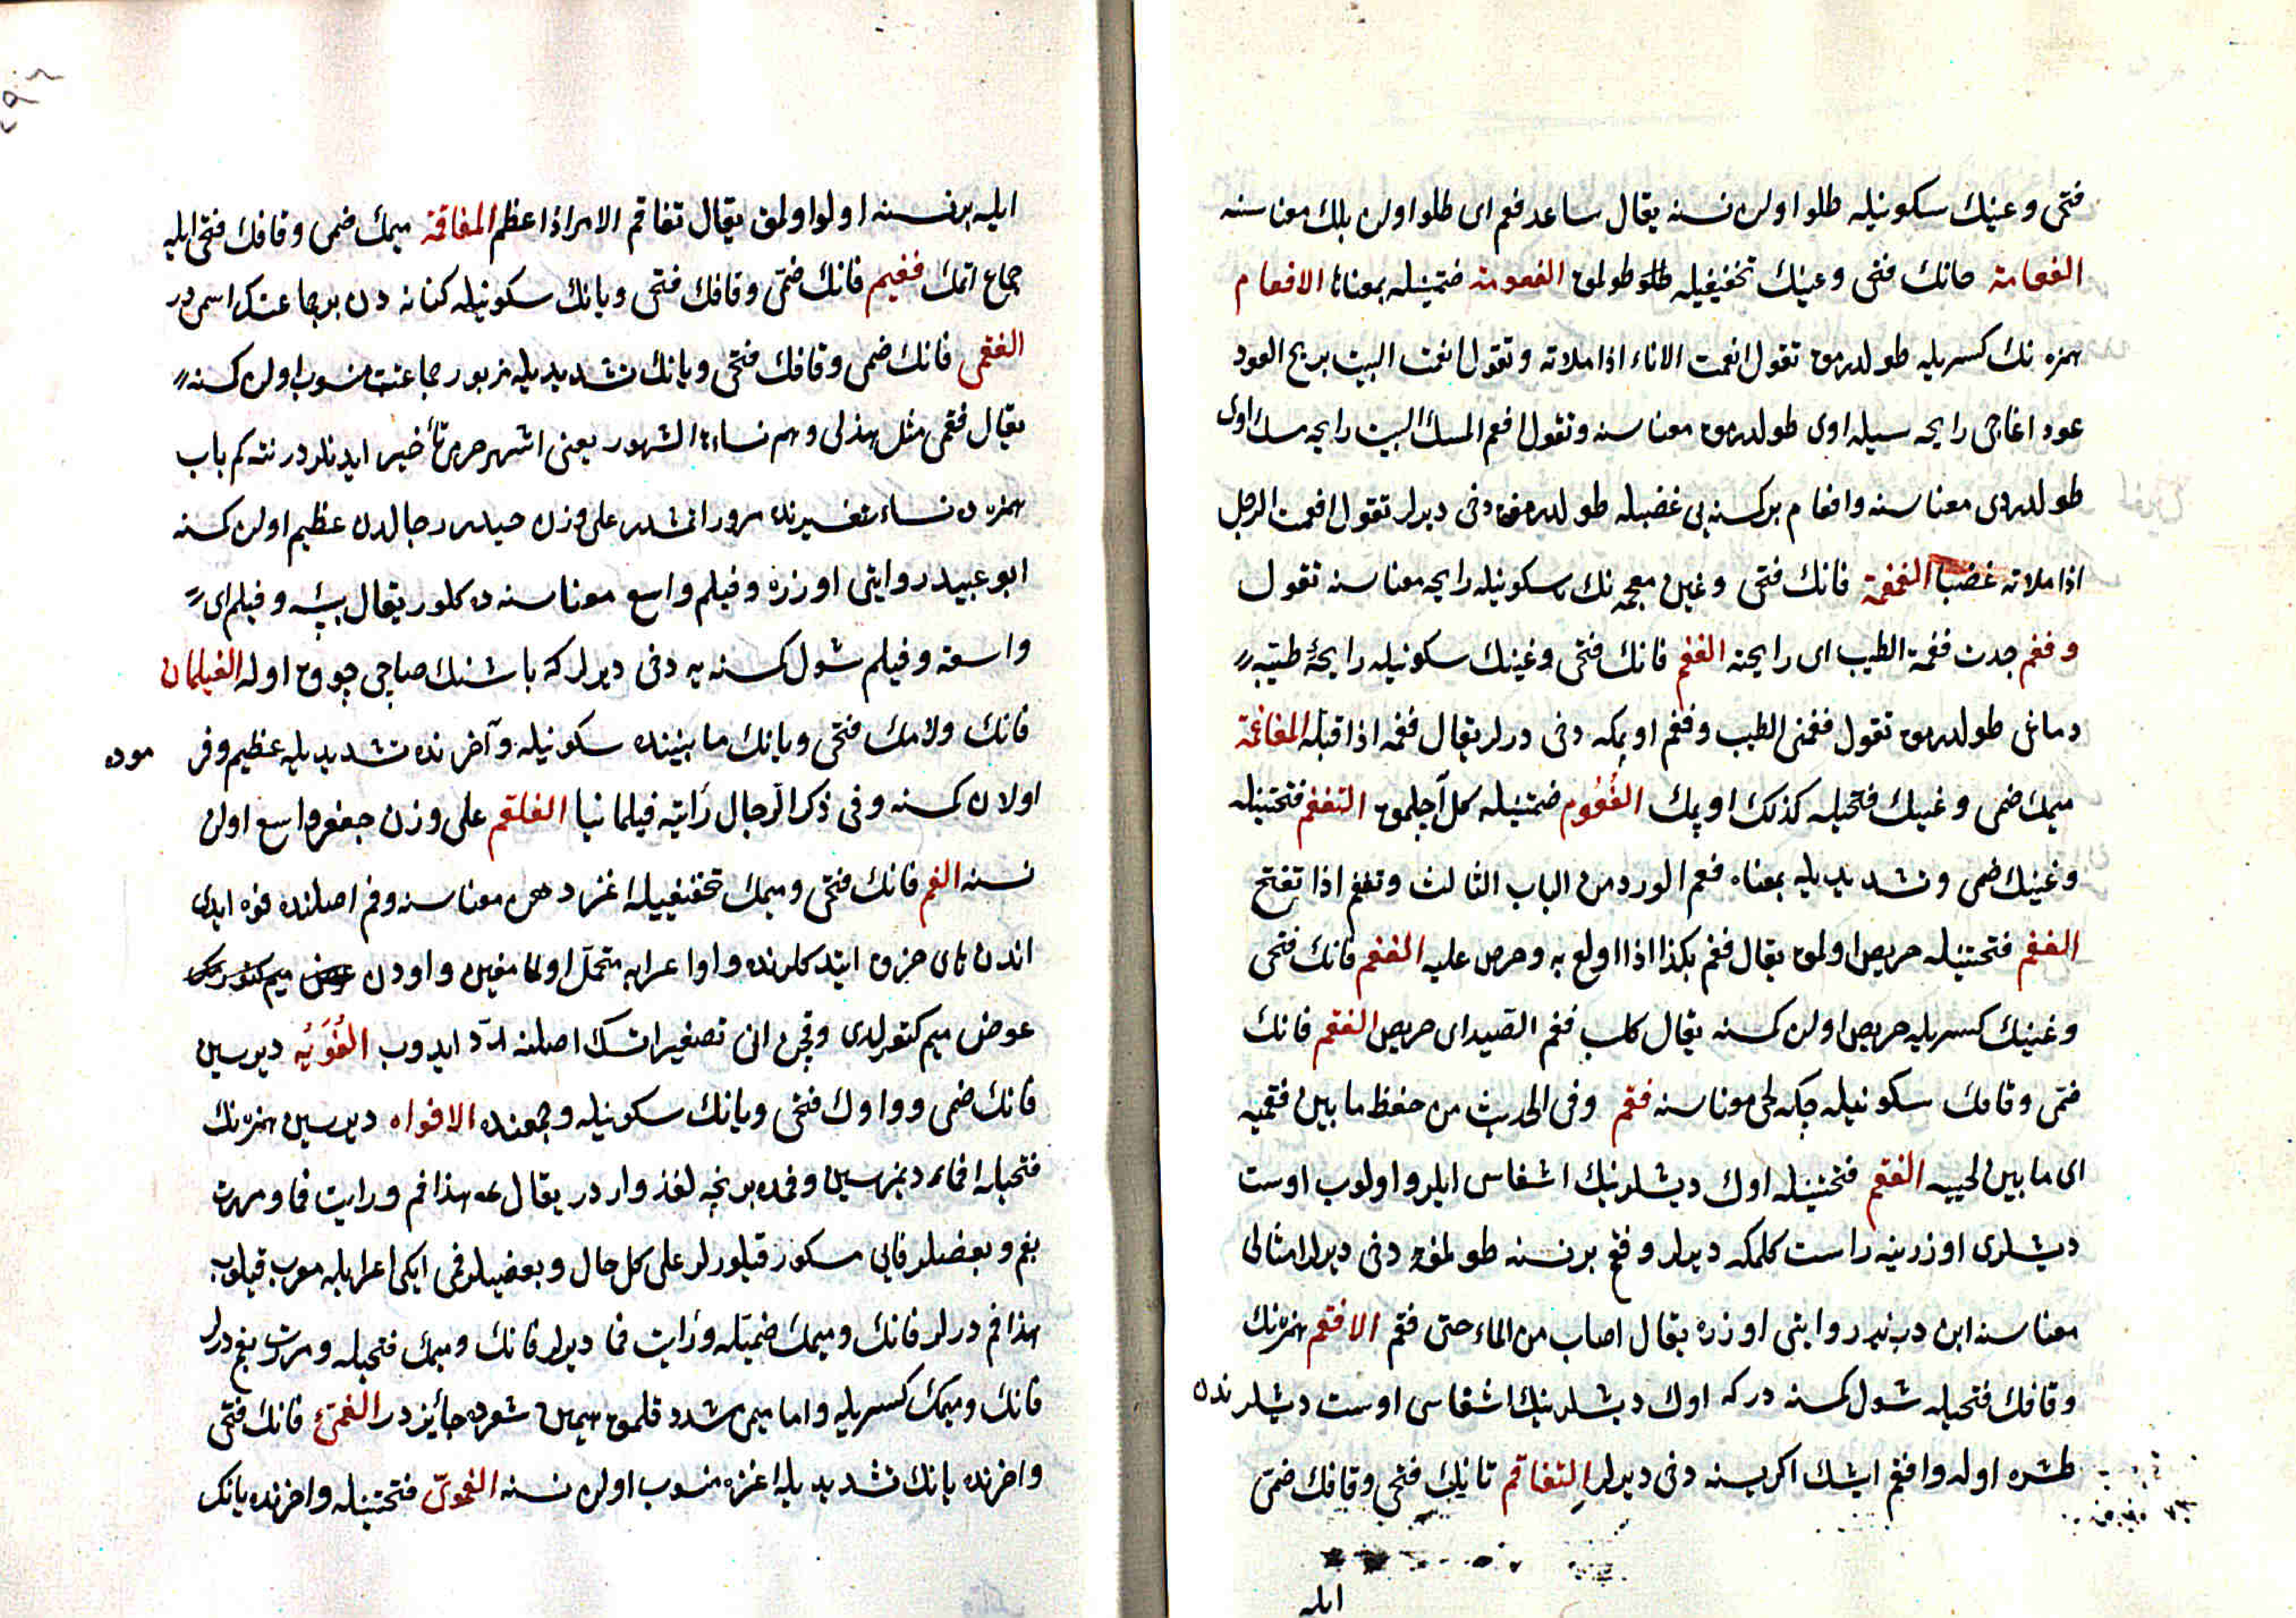 فتحى وعينك سكونيله طلو اولن نسنه يقال ساعد فعم اى طلو اولن بلك معناسنه
الفعامة فانك فتحى وعينك تخفيفيله طلو طولمق الفعومة ضمتينله بمعناها الافعام
همزه نك كسريله طولدرمق تقول افعمت الاناء اذا ملاته وتقول افعمت البيت بريح العود
عود اغاجى رايحه سيله اوى طولدرمق معناسنه وتقول افعم المسك البيت رايحه مسك اوى
طولدردى معناسنه وافعام بر كسنه يى غضبله طولدرمغه دخى ديرلر تقول افعمت الرجل
اذا ملاته غضبا الفغمة فانك فتحى وغين معجمه نك سكونيله رايحه معناسنه تقول
وفغم جدت فغمة الطيب اى رايحته الفغم فانك فتحى وغينك سكونيله رايحۀ طيبه
دماغى طولدرمق تقول فغمنى الطيب وفغم اوپمكه دخى درلر يقال فغمه اذا قبله المفاغمة
ميمك ضمى وغينك فتحيله كذلك اوپمك الفُغُوم ضمتينله كل آچلمق التفغم فتحتينله
وغينك ضمى وتشديديله بمعناه فغم الورد من الباب الثالث وتفغم اذا تفتح
الفغم فتحتينله حريص اولمق يقال فغم بكذا اذا اولع به وحرص عليه الفغم فانك فتحى
وغينك كسريله حريص اولن كسنه يقال كلب فغم الصيد اى حريص الفقم فانك
ضمى وقافك سكونيله چكه لحى معناسنه فقم وفى الحديث من حفظ ما بين فقميه
اى ما بين لحييه الفقم فتحتينله اوك ديشلرينك اشغاسى ايلرو اولوب اوست
ديشلرى اوزرينه راست كلمكه ديرلر وفقم بر نسنه طولمغه دخى ديرلر امتلا
معناسنه ابن دريد روايتى اوزره يقال اصاب من الماء حتى فقم الافقم همزه نك
وقافك فتحيله شول كسنه در كه اوك ديشلرينك اشغاسى اوست ديشلرندن
طشره اوله وافقم ايشك اكريسنه دخى ديرلر التفاقم تانيك فتحى وقافك ضمى
ايله
ايله بر نسنه اولو اولمق يقال تفاقم الامر اذا عظم المفاقمة ميمك ضمى وقافك فتحى ايله
جماع اتمك فقيم فانك ضمى وقافك فتحى ويانك سكونيله كنانه دن بر جماعتك اسمى در
الفقمى فانك ضمى وقافك فتحى ويانك تشديديله مزبور جماعته منسوب اولن كسنه
يقال فقمى مثل هذلى وهم نساءة الشهور يعنى اشهر حرمى تأخير ايدنلردر نته كم باب
همزه ده نساء تفسيرنده مرور اتمشدر على وزن حيدر رجالدن عظيم اولن كسنه
ابو عبيد روايتى اوزره وفيلم واسع معناسنه ده كلور يقال بئر وفيلم اى
واسعة وفيلم شول كسنه يه دخى ديرلر كه باشنك صاچى چوق اوله الفيلمان
فانك ولامك فتحى ويانك مابيننده سكونيله وآخرنده تشديديله عظيم وفر موده
اولان كسنه وفى ذكر الرجال رأيته فيلمانيا الفلقم على وزن جعفر واسع اولن
نسنه الفم فانك فتحى وميمك تخفيفيله اغز دهن معناسنه وفم اصلنده فوه ايدى
اندن هاى حزف ايتدكلرنده واو اعرابه متحمل اولمامغين واودن
عوض ميم كتورلدى وقچن انى تصغير اتسك اصلنه ردّ ايدوب الفُوَيْه ديرسين
فانك ضمى وواوك فتحى ويانك سكونيله وجمعنده الافواه ديرسين همزه نك
فتحيله افماء ديمزسين وفمده بر نچه لغة واردر يقال هذا فم ورايت فما ومررت
بفم وبعضلر فايى مكسور قيلورلر على كل حال وبعضيلر فى ايكى اعرابله معرب قيلوب
هذا فم درلر فانك وميمك ضميله ورأيت فما ديرلر فانك وميمك فتحيله ومررت بفم درلر
فانك وميمك كسريله واما ميمى مشدد قلمق همين شعرده جائزدر الفمىّ فانك فتحى
واخرنده يانك تشديديله اغزه منسوب اولن نسنه الفموىّ فتحتينله واخرنده يانك